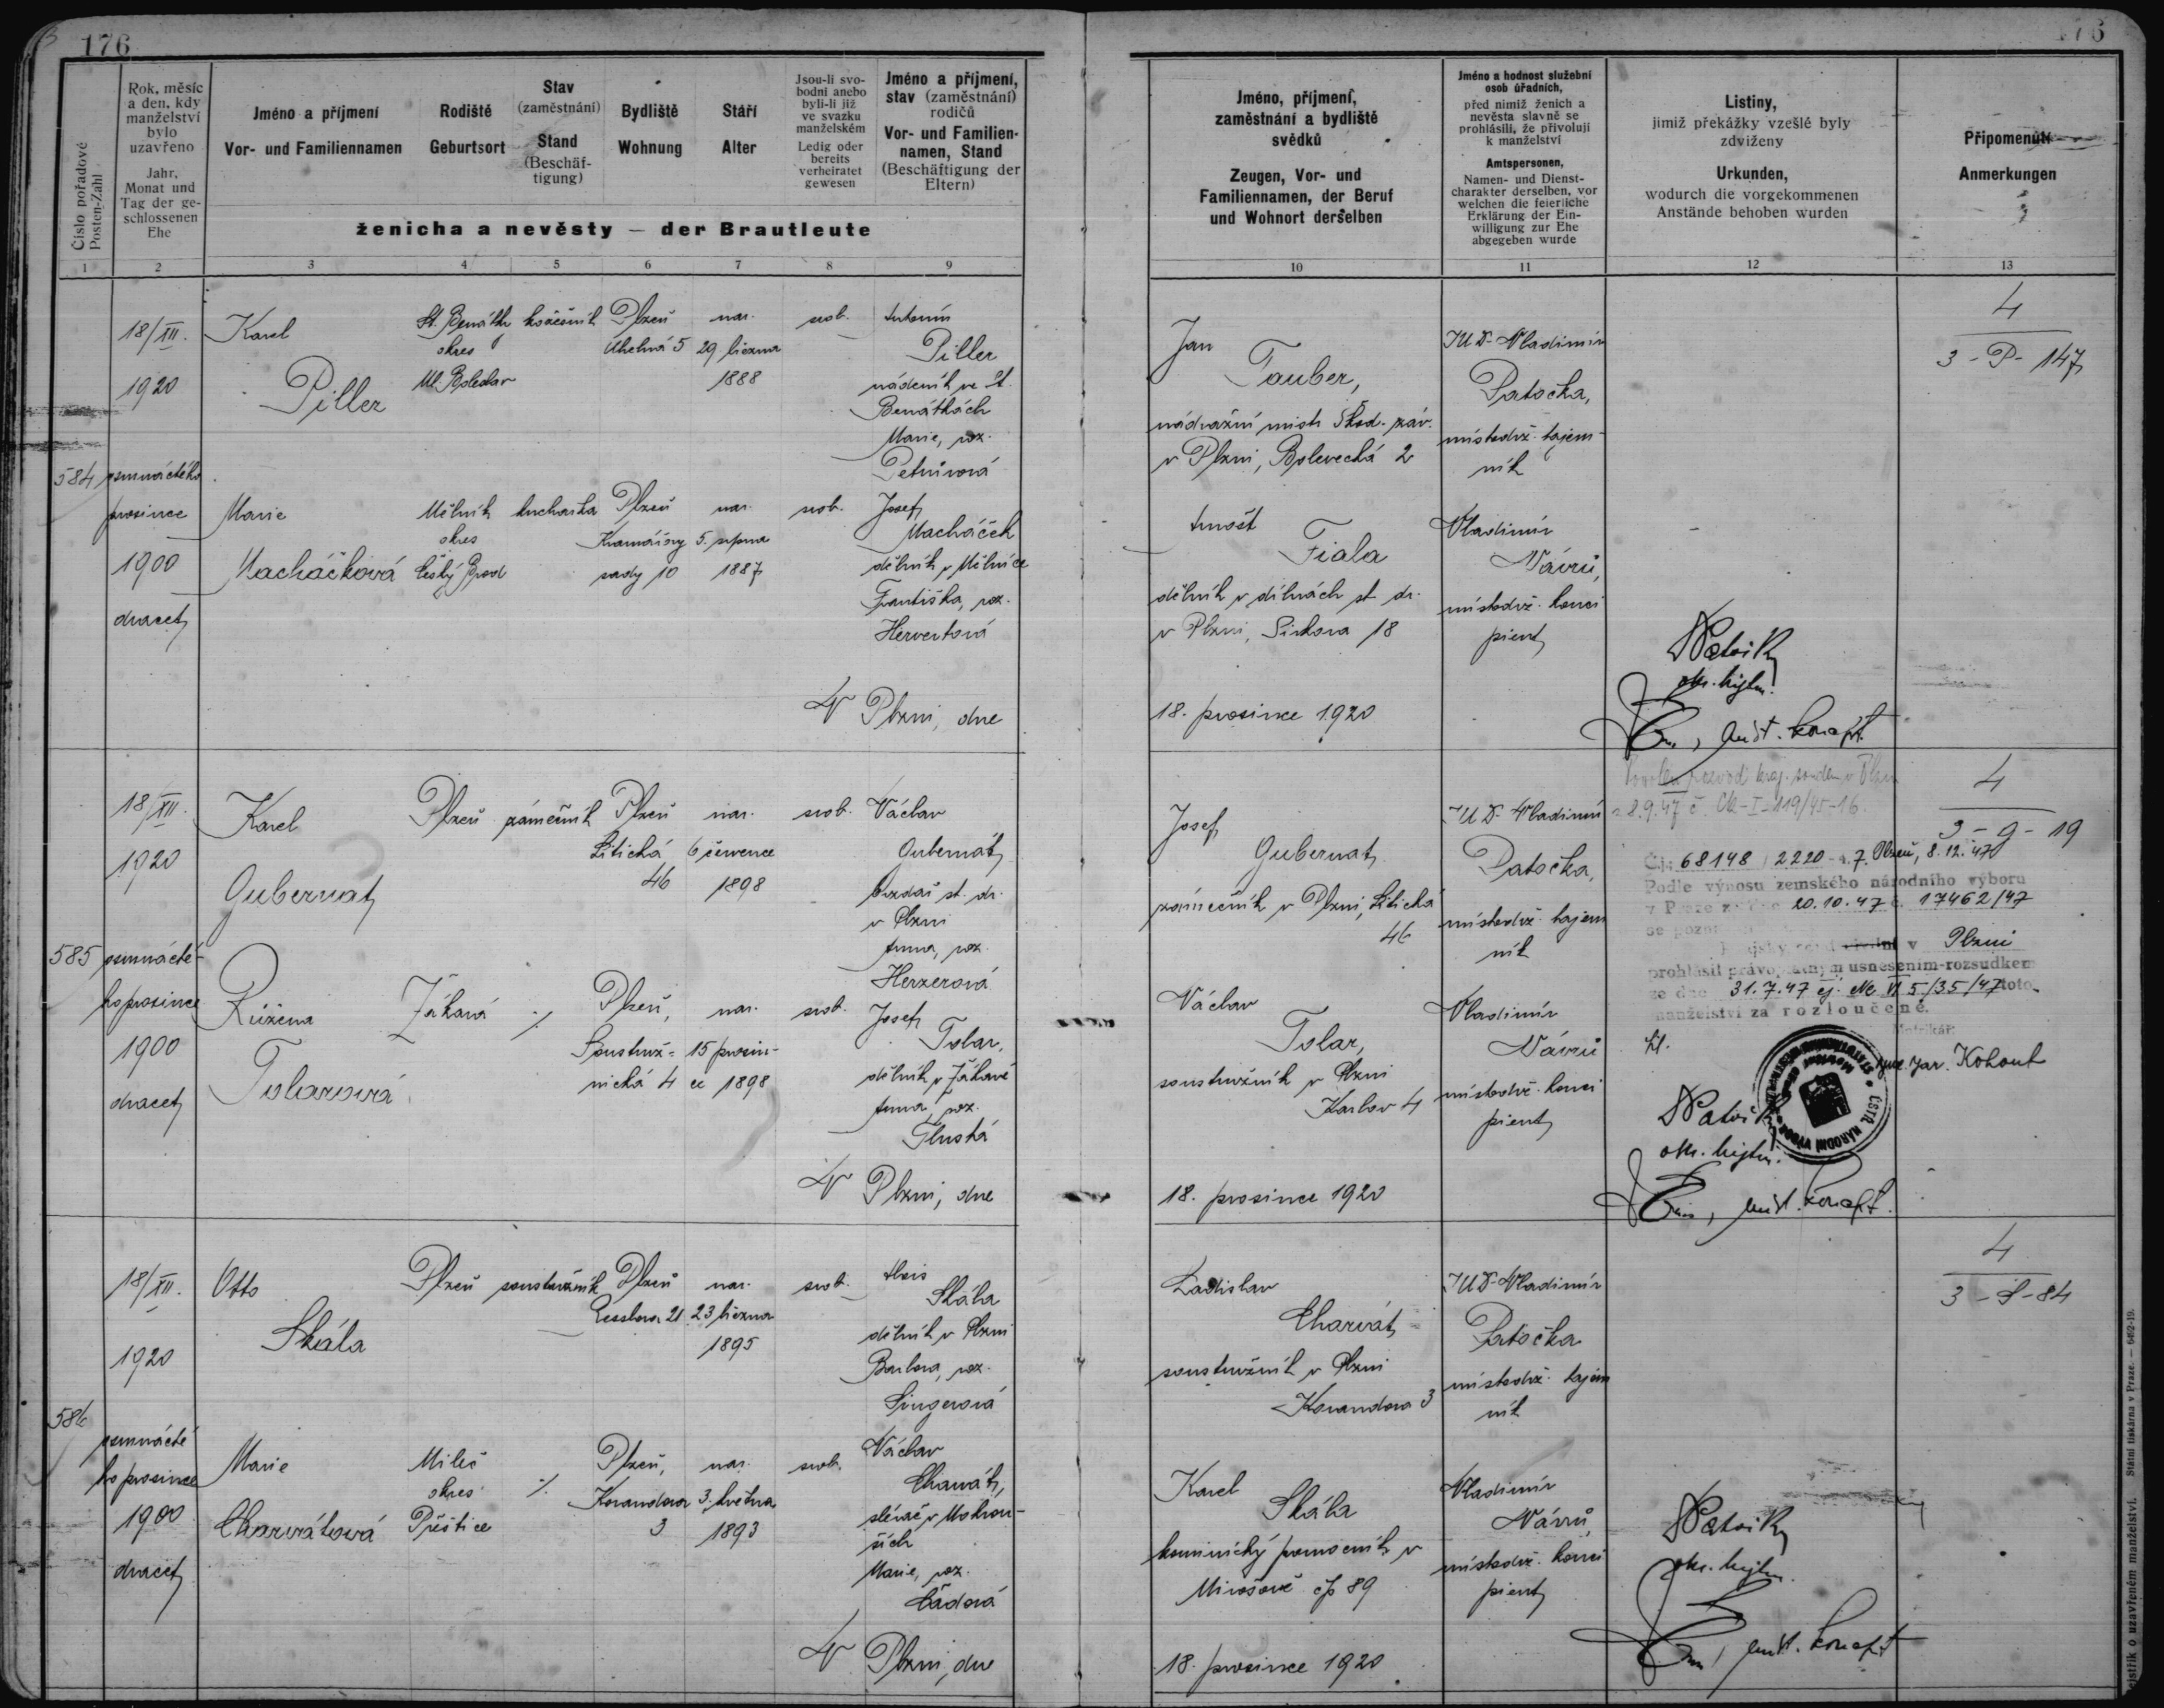 176
176
Číslo pořadové
Posten-Zahl
Rok, měsíc
a den, kdy
manželství
bylo
uzavřeno
Jahr,
Monat und
Tag der ge-
schlossenen
Ehe
Jméno a příjmení
Vor- und Familiennamen
Rodiště
Geburtsort
Stav
(zaměstnání)
Stand
(Beschäf-
tigung)
Bydliště
Wohnung
Stáří
Alter
Jsou-li svo-
bodni anebo
byli-li již
ve svazku
manželském
Ledig oder
bereits
verheiratet
gewesen
Jméno a příjmení,
stav (zaměstnání)
rodičů
Vor- und Familien-
namen, Stand
(Beschäftigung der
Eltern)
ženicha a nevěsty — der Brautleute
1 2 3 4 5 6 7 8 9
Jméno, příjmení,
zaměstnání a bydliště
svědků
Zeugen, Vor- und
Familiennamen, der Beruf
und Wohnort derselben
Jméno a hodnost služební
osob úřadních,
před nimiž ženich a
nevěsta slavně se
prohlásili, že přivolují
k manželství
Amtspersonen,
Namen- und Dienst-
charakter derselben, vor
welchen die feierliche
Erklärung der Ein-
willigung zur Ehe
abgegeben wurde
Listiny,
jimiž překážky vzešlé byly
zdviženy
Urkunden,
wodurch die vorgekommenen
Anstände behoben wurden
Připomenutí
Anmerkungen
10 11 12 13
584
18/XII.
1920
osmnáctého
prosince
1900
dvacet
Karel
Piller
St. Benátky
okres
Ml. Boleslav
kožešník
Plzeň
Úhelná 5
nar.
29. března
1888
svob.
Antonín
Piller
nádeník ve St.
Benátkách
Marie, roz.
Petrů
Marie
Macháčková
Mělník
okres
Český Brod
kuchařka
Plzeň
sady 10
nar.
5. srpna
1887
svob.
Josef
Macháček
dělník v Mělníce
Františka, roz.
V Plzni, dne
Jan
Tauber,
nádražní mistr Škod. záv.
v Plzni, Bolevecká 2
Arnošt
Fiala
dělník v dílnách st. dr.
v Plzni, 18
18. prosince 1920
JUDr. Vladimír
Patočka,
místodrž. tajem-
ník
Vladimír
Návrů,
místodrž. konci
pient
okr. hejtm.
4
3 - P - 147
585
18/XII.
1920
osmnácté-
ho prosince
1900
dvacet
Karel
Gubernat
Plzeň
zámečník
Plzeň
Litická
46
nar.
6 července
1898
svob.
Václav
Gubernát
brzdař st. dr.
v Plzni
Anna, roz.
Herzerová
Růžena
Tolarová
Žákavá
%
Plzeň,
Soustruž-
nická 4
nar.
15 prosin-
ce 1898
svob.
Josef
Tolar,
dělník v Žákavé
Anna, roz.
Tlustá
V Plzni, dne
Josef
Gubernat
zámečník v Plzni, Litická
46
Václav
Tolar,
soustružník v Plzni
Karlov 4
18. prosince 1920
JUDr. Vladimír
Patočka,
místodrž. tajem
ník
Vladimír
Návrů
místodrž. konci
pient
Povolen rozvod kraj. soudem v Plzni
8.9.47 č. Ck-I-119/45-16.
Č.j.: 68148 / 2220 7. Plzeň, 8.12.47
Podle výnosu zemského národního výboru
v Praze ze dne 20.10.47 č. 17462/47
se pozn
Krajský soud v Plzni
prohlásil právoplatným usnesením-rozsudkem
ze dne 31.7.47 čj. Nc VI 5/35/47 toto
manželství za rozloučené.
Matrikář:
Jar. Kohout
ÚSTŘ. NÁRODNÍ VÝBOR
okr. hejtm.
4
3 - G - 19
586
18/XII.
1920
osmnácté
ho prosince
1900
dvacet
Otto
Skála
Plzeň
soustružník
Plzeň
21
nar.
23 března
1895
svob.
Alois
Skála
dělník v Plzni
Barbora, roz.
Singerová
Marie
Charvátová
Mileč
okres
Přeštice
%
Plzeň,
Korandova
3
nar.
3. května
1893
svob.
Václav
Charvát,
slévač v Mokrou-
ších
Marie, roz.
Čádová
V Plzni, dne
Ladislav
Charvát
soustružník v Plzni
Korandova 3
Karel
Skála
kominický pomocník v
Mirošově čp 89
18. prosince 1920
JUDr. Vladimír
Patočka
místodrž. tajem
ník
Vladimír
Návrů,
místodrž. konci
pient
okr. hejtm.
4
3 - S - 84
Rejstřík o uzavřeném manželství. Státní tiskárna v Praze. — 6462-19.